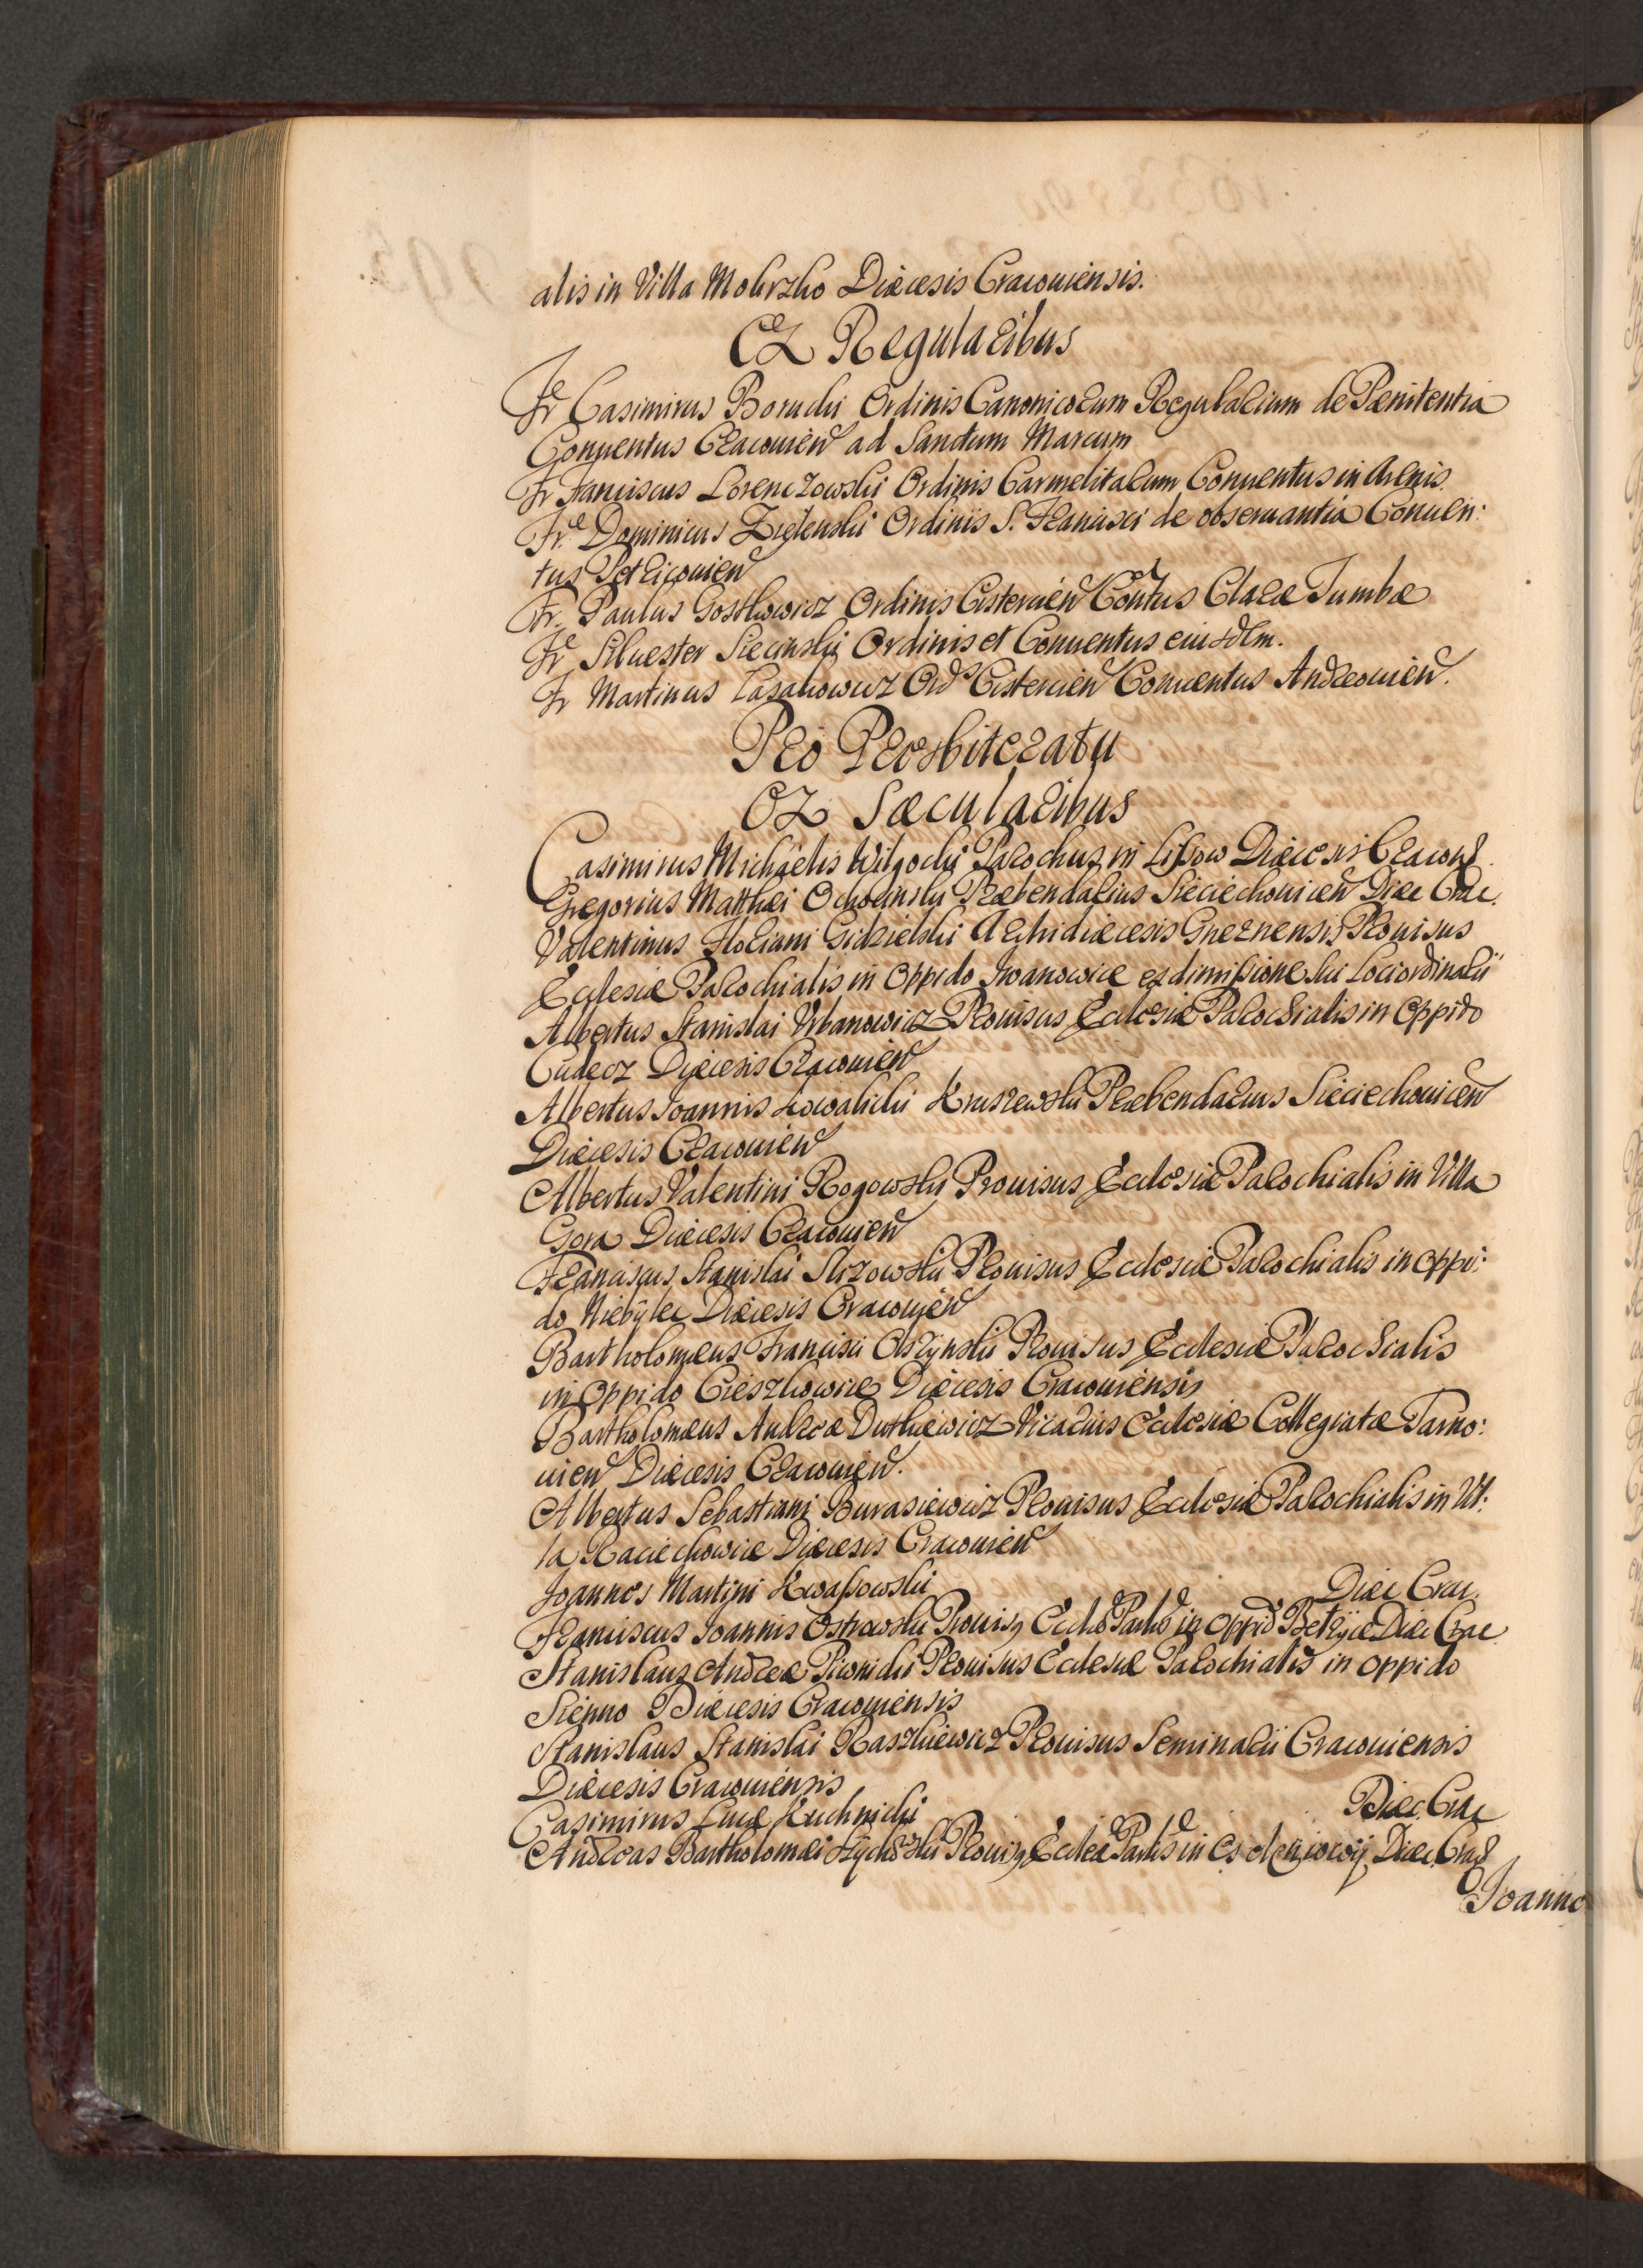 alis in Villa Mokrzko Diæcesis Cracouiensis.
Ex Regularibus
Fr Casimirus Borucki Ordinis Canonicorum Regularium de Pænitentia
Conuentus Cracouien ad Sanctum Marcum
Fr Franciscus Lorenczowski Ordinis Carmelitarum Conuentus in Arenis
Fr. Dominicus Zielenski Ordinis S. Francisci de obseruantia Conuen:
tus Petricouien
Fr. Paulus Gostkowicz Ordinis Cistercien Contus Claræ Tumbæ
Fr Siluester Siecinski Ordinis et Conuentus eiusdm.
Fr Martinus Lasakowicz Ord Cistercien Conuentus Andreouien.
Pro Præsbiteratu
Ex Sæcularibus
Casimirus Michaelis Wilgocki Parochus in Lissow Diæcesis Cracou
Gregorius Matthæi Ochocinski Præbendarius Sieciechouicen Diæc Crac.
Valentinus Floriani Gidzielski Archidiæcesis Gneznensis Prouisus
Ecclesiæ Parochialis in Oppido Iwanowice ex dimissione sui Lociordinarii
Albertus Stanislai Vrbanowicz Prouisus Ecclesiæ Parochialis in Oppido
Cudecz Diæcesis Cracouien
Albertus Joannis Kowalicki Kruszewski Præbendarius Sieciechouicen
Diæcesis Cracouien
Albertus Valentini Rogowski Prouisus Ecclesiæ Parochialis in Villa
Gora Diæcesis Cracouien
Franciscus Stanislai Skrzowski Prouisus Ecclesiæ Parochialis in Oppi:
do Niebylec Diæcesis Cracouien
Bartholomæus Francisci Olszynski Prouisus Ecclesiæ Parochialis
in Oppido Cieszkowice Diæcesis Cracouiensis
Bartholomæus Andreæ Dutkiewicz Vicarius Ecclesiæ Collegiatæ Tarno:
uien Diæcesis Cracouien.
Albertus Sebastiani Burasiewicz Prouisus Ecclesiæ Parochialis in Vil:
la Raciechowice Diæcesis Cracouien
Joannes Martini Kwassowski Diæc Crac.
Franciscus Joannis Ostrowski Prouisꝫ Eccle Parlis in Oppid Diæc Crac.
Stanislaus Andreæ Piwnicki Prouisus Ecclesiæ Parochialis in Oppido
Sienno Diæcesis Cracouiensis
Stanislaus Stanislai Raszkiewicz Prouisus Seminarii Cracouiensis
Diæcesis Cracouiensis
Casimirus Lucæ Kuchnicki Diæc. Crac
Andreas Bartholomæi Prouisꝫ Eccleæ Parlis in Diæc. Crac
Joanne